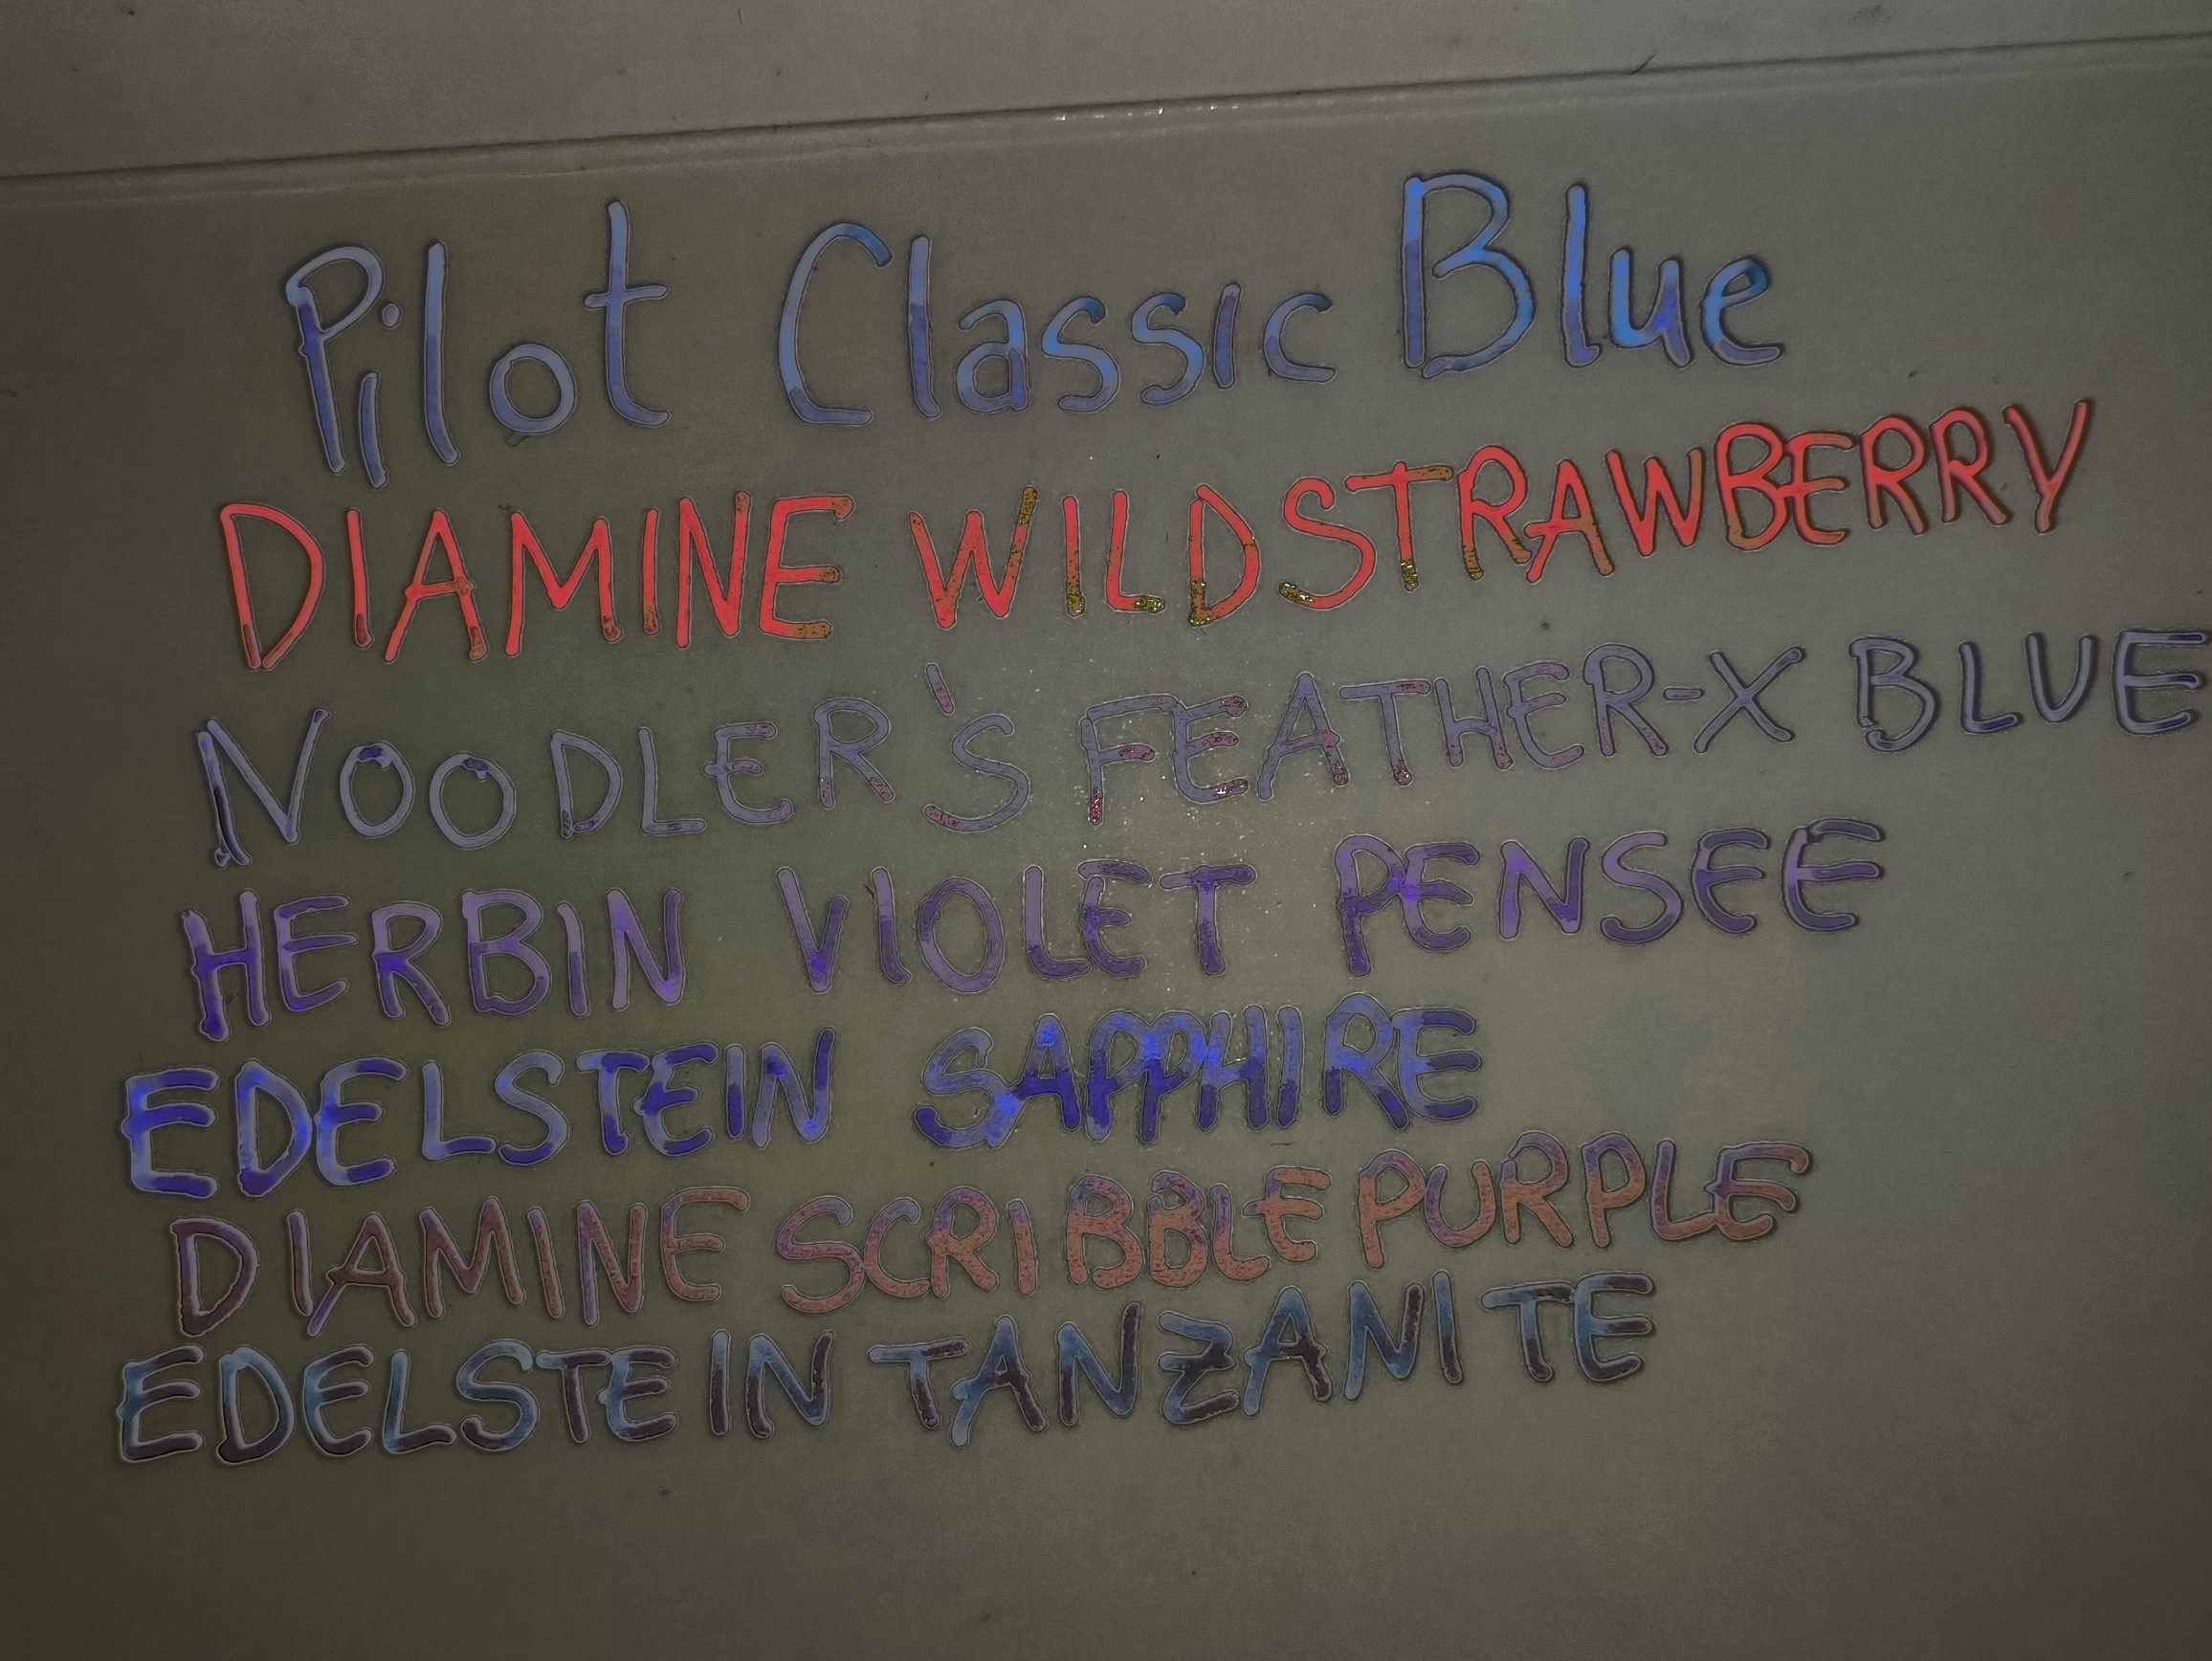 Pilot Classic Blue
DIAMINE WILDSTRAWBERRY
NOODLER'S FEATHER-X BLUE
HERBIN VIOLET PENSEE
EDELSTEIN SAPPHIRE
DIAMINE SCRIBBLE PURPLE
EDELSTEIN TANZANITE